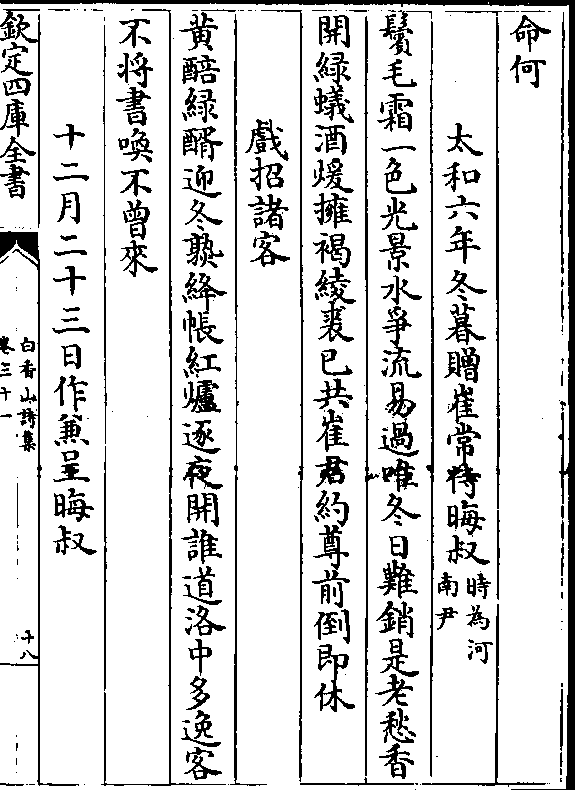 命何
太和六年冬暮贈崔常侍晦叔時為河
南尹
鬢毛霜一色光景水爭流易過唯冬日難銷是老愁香
開綠蟻酒煖擁褐綾裘已共崔君約尊前倒即休
戲招諸客
黄醅綠醑迎冬熟絳帳紅爐逐夜開誰道洛中多逸客
不將書喚不曾來
十二月二十三日作兼呈晦叔
欽定四庫全書
白香山詩集
卷三十一
十八